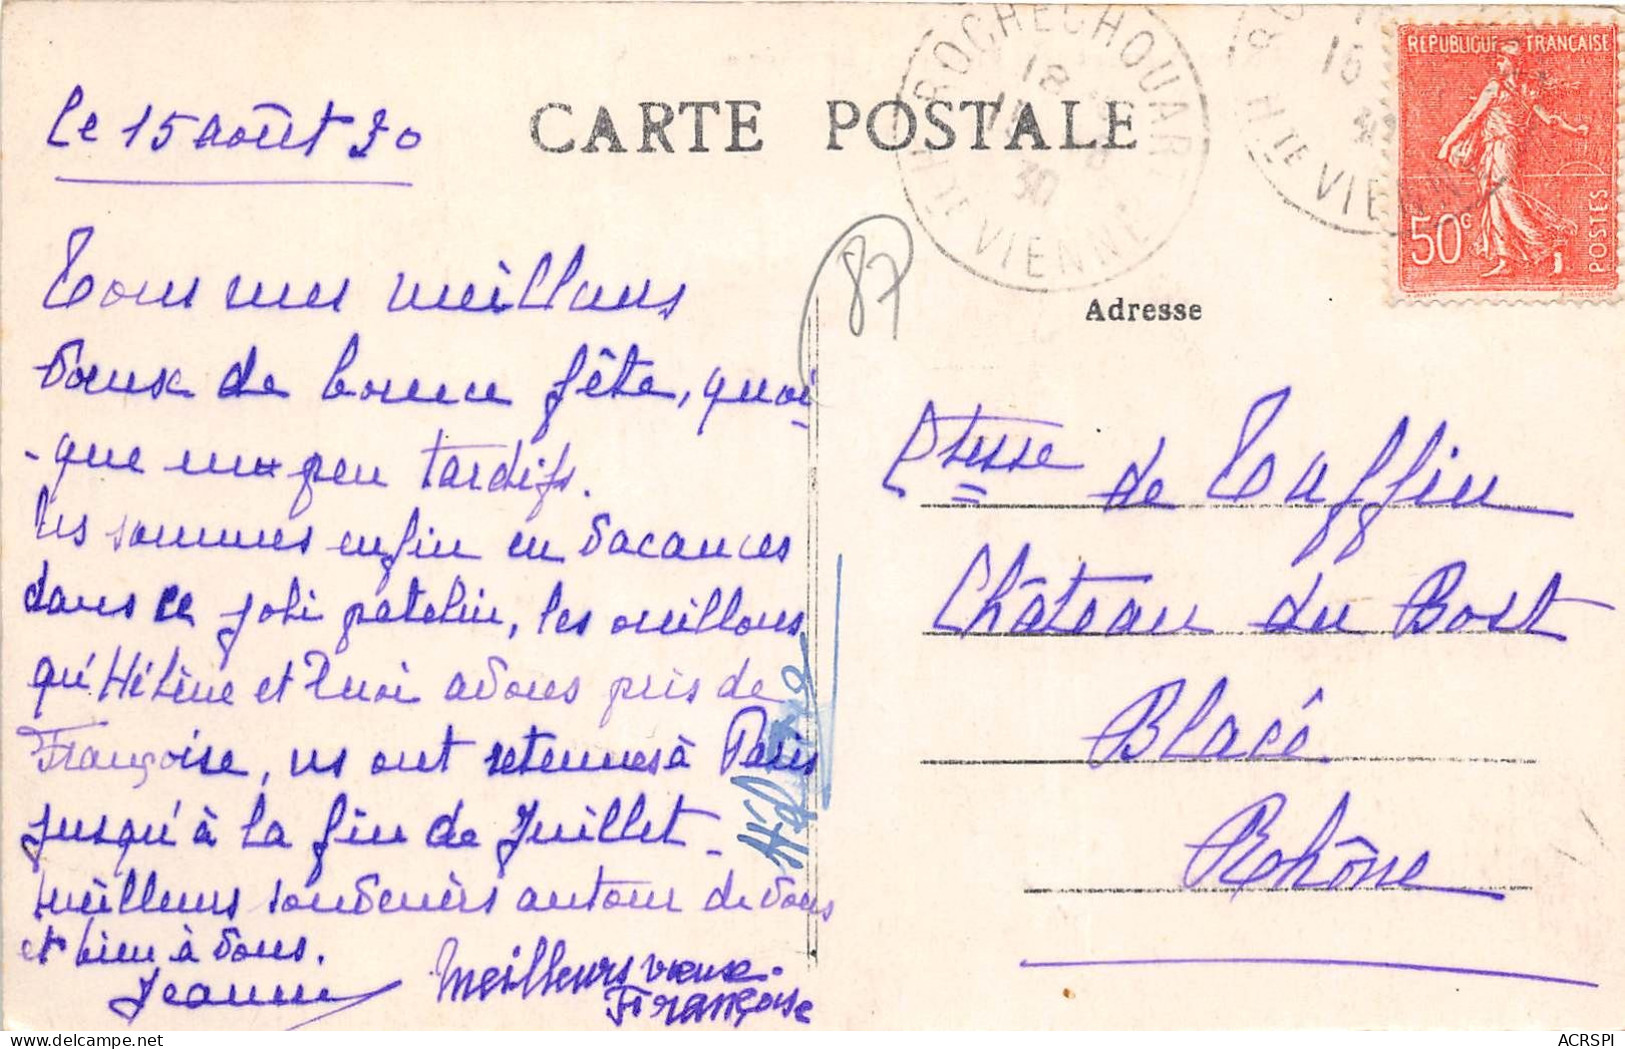 le 15 août 30
CARTE POSTALE
ROCHECHOUART
18
15 8
30
HTE VIENNE
15
30
HTE VIENNE
REPUBLIQUE FRANÇAISE
50c
POSTES
87
Adresse
Tous mes meilleurs
vœux de bonne fête, quoi
-que un peu tardifs.
Ns sommes enfin en vacances
dans ce joli patelin, les oreillons
qu'Hélène et moi avons pris de
Françoise, ns ont retenues à Paris
jusqu'à la fin de Juillet -
Meilleurs souvenirs autour de vous
et bien à vous.
Jeanne
Meilleurs vœux.
Françoise
Hélène
Ctesse de Taffin
Château du Bost
Blacé
Rhône
ACRSPI